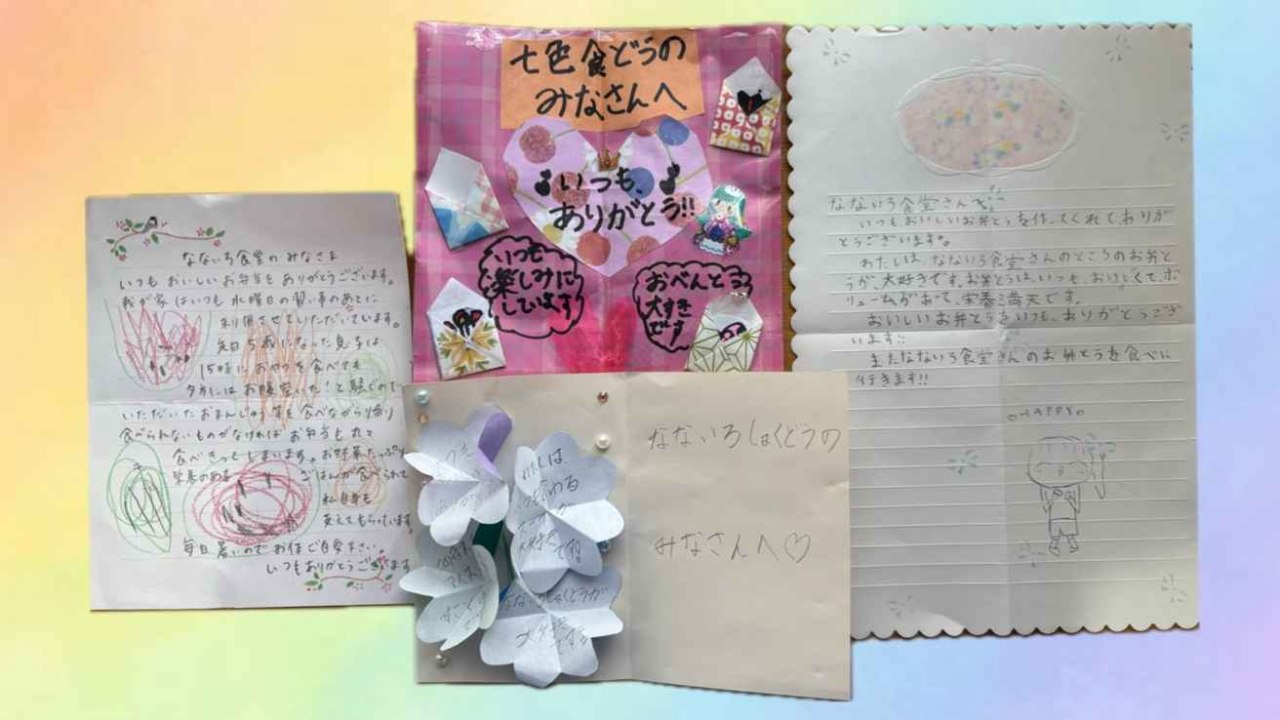 なないろ食堂のみなさま
いつもおいしいお弁当をありがとうございます。
我が家はいつも水曜日の習い事のあとに
利用させていただいています。
先日5歳になった息子は
15時におやつを食べても
夕方には お腹空いた!と
いただいたおまんじゅう等を食べながら帰り
食べられないものがなければお弁当も丸々
食べきってしまいます。お野菜たっぷり
栄養のある ごはんが食べられて
私自身も
支えてもらっています。
毎日暑いのでお体ご自愛下さい。
いつもありがとうございます
七色食どうの
みなさんへ
いつも、
ありがとう!!
いつも
楽しみに
しています
おべんとう
大すき
です
なないろ食堂さんへ
いつもおいしいお弁とうを作ってくれてありが
とうございます。
わたしは、なないろ食堂さんのところのお弁と
うが、大好きです。お弁とうは、いつも、おいしくて、ボ
リュームがあって、栄養満天です。
おいしいお弁とうをいつも、ありがとうござ
います!!
またなないろ食堂さんのお弁とうを食べに
行きます!!
HAPPY
なないろしょくどうの
みなさんへ♡
いつも
わたしは、
なないろしょくどうが